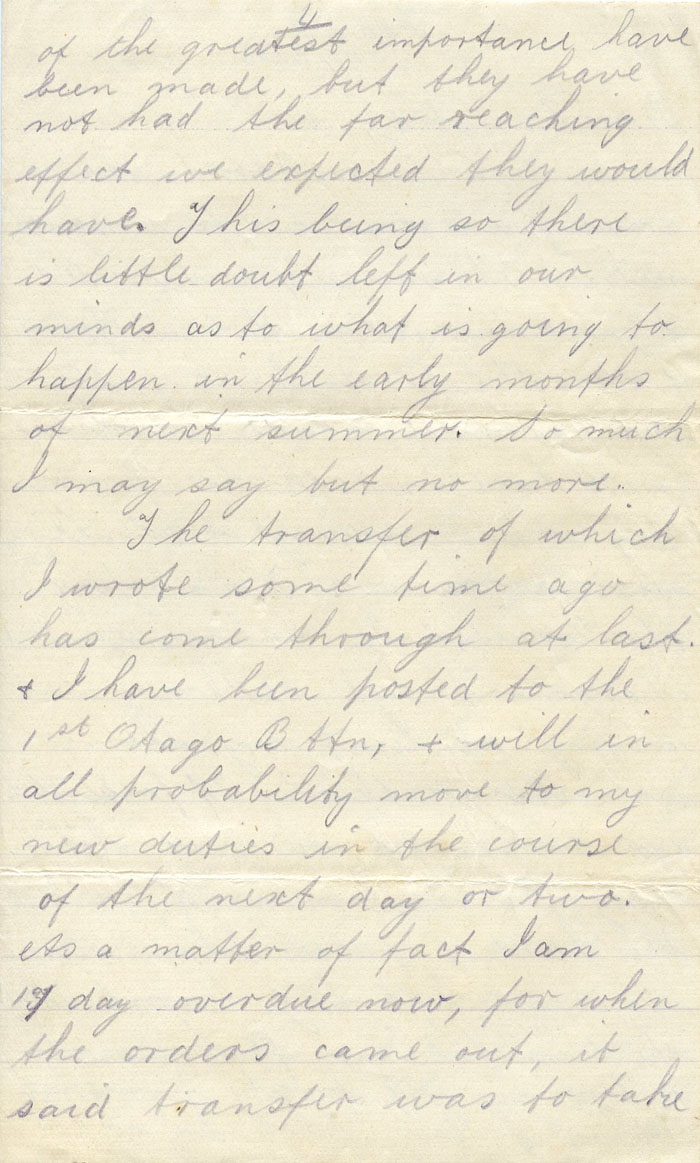 4
of the greatest importance have
been made, but they have
not had the far reaching
effect we expected they would
have. This being so there
is little doubt left in our
minds as to what is going to
happen in the early months
of next summer. So much
I may say but no more.
The transfer of which
I wrote some time ago
has come through at last.
+ I have been posted to the
1st Otago Bttn, + will in
all probability move to my
new duties in the course
of the next day or two.
As a matter of fact I am
day overdue now, for when
the orders came out, it
said transfer was to take